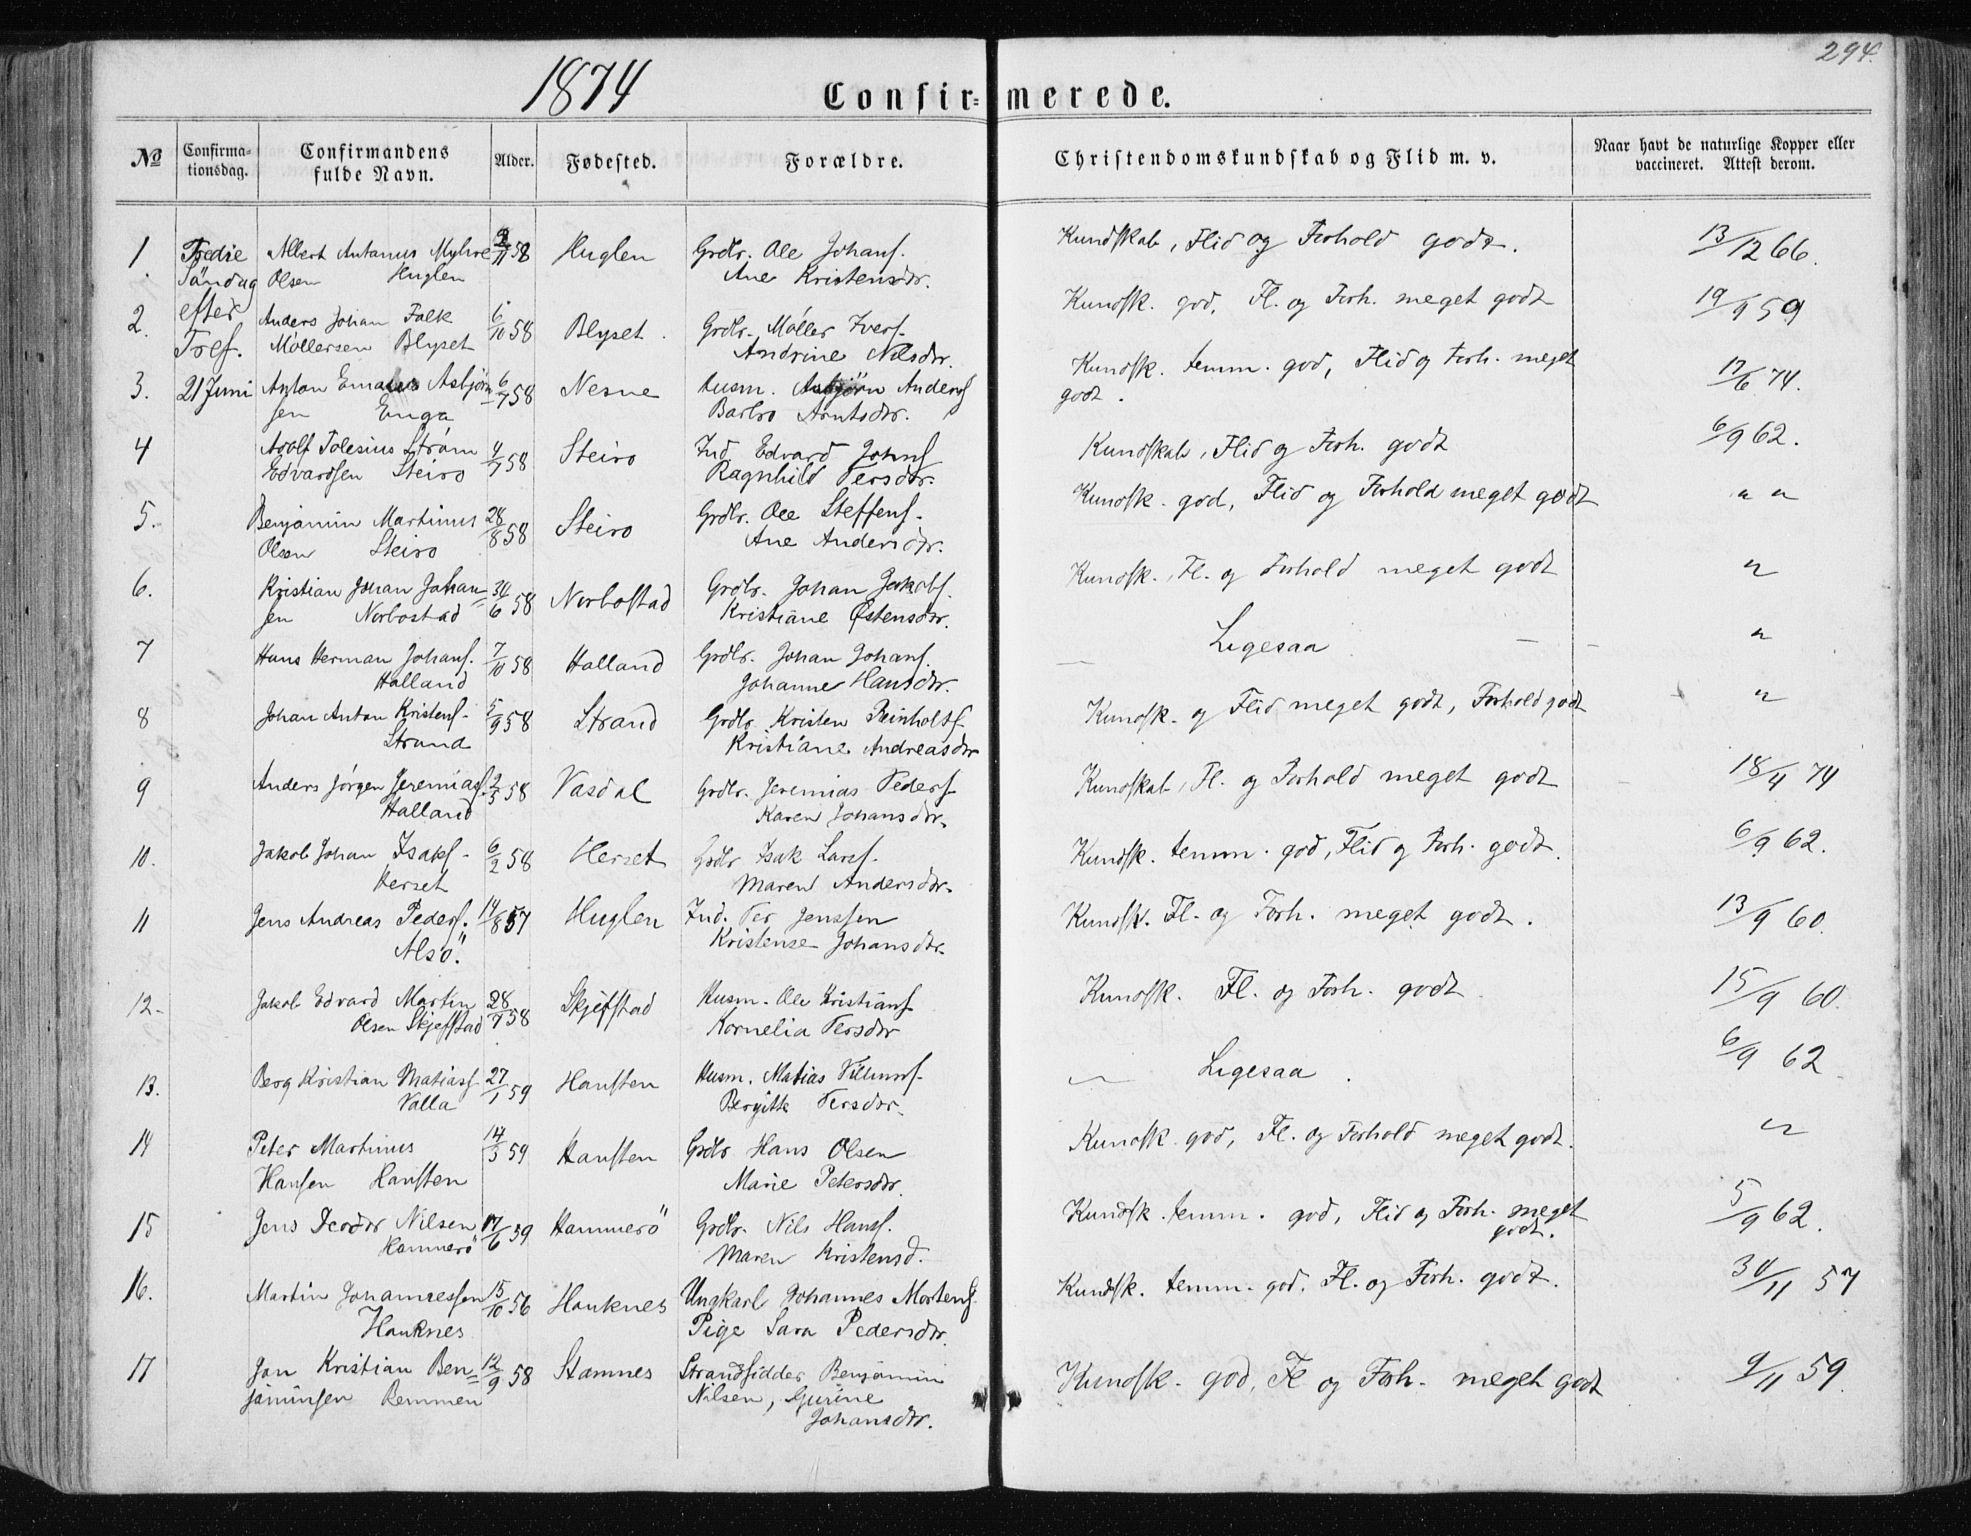 294.
1874
Confirmerede.
№ Confirmationsdag. Confirmandens fulde Navn. Alder. Fødested. Forældre. Christendomskundskab og Flid m. v. Naar havt de naturlige Kopper eller vaccineret. Attest derom.
1 Tredie Albert Antonius Myhre 58 Huglen Grdbr. Ole Johans. Kundskab, Flid og Forhold godt. 13/12 66.
Søndag Olsen Huglen Ane Kristensdtr.
2. efter Anders Johan Falk 6/10 58 Blyset. Grdbr. Møller Ivers. Kundsk. god, Fl. og Forh. meget godt 19/9 59
Tref. Møllersen Blyset Andrine Nilsdtr.
3. 21 Juni Anton Asbjørn 6/7 58 Nesne Husm. Asbjørn Anders Kundsk. temm. god, Flid og Forh. meget 17/6 74.
sen Enga Barbro Arntsdtr. godt.
4 Adolf Tolesius Strøm 4/7 58 Steiro Ind. Edvard Johns Kundskab, Flid og Forh. godt 6/9 62.
Edvardsen Steiro Ragnhild Persdtr.
5. Benjamin Martinus 28/8 58 Steiro Grdbr. Ole Steffens. Kundsk. god, Flid og Forhold meget godt " "
Olsen Steiro Ane Andersdtr.
6. Kristian Johan Johan= 24/6 58 Norbostad Grdbr. Johan Jakobs. Kundsk., Fl. og Forhold meget godt "
sen Norbostad Kristiane Østensdtr.
7 Hans Herman Johans. 7/10 58 Halland Grdbr. Johan Johans. — Ligesaa — - "
Halland Johanne Hansdtr.
8 Johan Anton Kristens. 5/9 58 Strand Grdbr. Kristen Reinholts. Kundsk. og Flid meget godt, Forhold godt "
Strand Kristiane Andreasdtr
9 Anders Jørgen Jeremias. 2/5 58 Vasdal Grdbr. Jeremias Peders. Kundskab, Fl. og Forhold meget godt 18/4 74
Halland Karen Johansdtr.
10. Jakob Johan Isaks. 6/2 58 Herset Grdbr. Isak Lars. Kundsk. temm. god, Flid og Forh. godt. 6/9 62.
Herset Maren Andersdtr.
11 Jens Andreas Peders. 14/8 57 Huglen Ind. Per Jenssen Kundsk. Fl. og Forh. meget godt. 13/9 60.
Alsö. Kristense Johansdtr.
12. Jakob Edvard Martin 28/7 58 Skjefstad Husm. Ole Kristians Kundsk. Fl. og Forh. godt 15/9 60.
Olsen Skjefstad Kornelia Persdtr
13. Berg Kristian Matias. 27/1 59 Hansten Husm. Matias Villums. — Ligesaa. 6/9 62
Valla Bergitte Persdtr.
14 Peter Martinus 14/3 59 Hansten Grdbr Hans Olsen Kundsk god, Fl. og Forhold meget godt. "
Hansen Hansten Marie Petersdtr.
15 Jens Teodor Nilsen 17/6 59 Hammerö Grdbr. Nils Hans. Kundsk. temm. god, Flid og Forh. meget 5/9 62.
Hammerö Maren Kristensd. godt.
16. Martin Johannessen 15/10 56 Hauknes Ungkarl Johannes Mortens. Kundsk. temm. god. Fl. og Forh. godt. 30/11 57
Hauknes Pige Sara Pedersdtr.
17 Jan Kristian Ben= 12/9 58 Stamnes Strandsidder Benjamin Kundsk. god, Fl og Forh. meget godt 9/11 59.
jaminsen Remmen Nilsen, Gurine
Johansdtr.